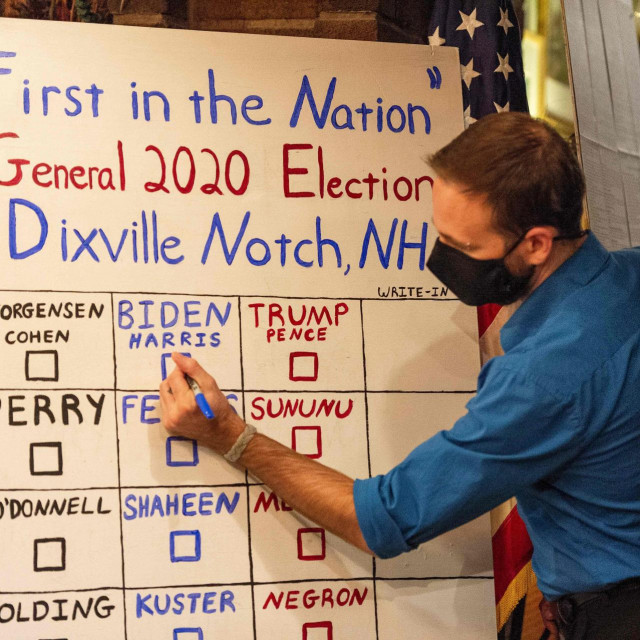 First in the Nation"
General 2020 Election
Dixville Notch, NH
WRITE-IN
JORGENSEN BIDEN TRUMP
COHEN HARRIS PENCE
PERRY SUNUNU
O'DONNELL SHAHEEN
KUSTER NEGRON